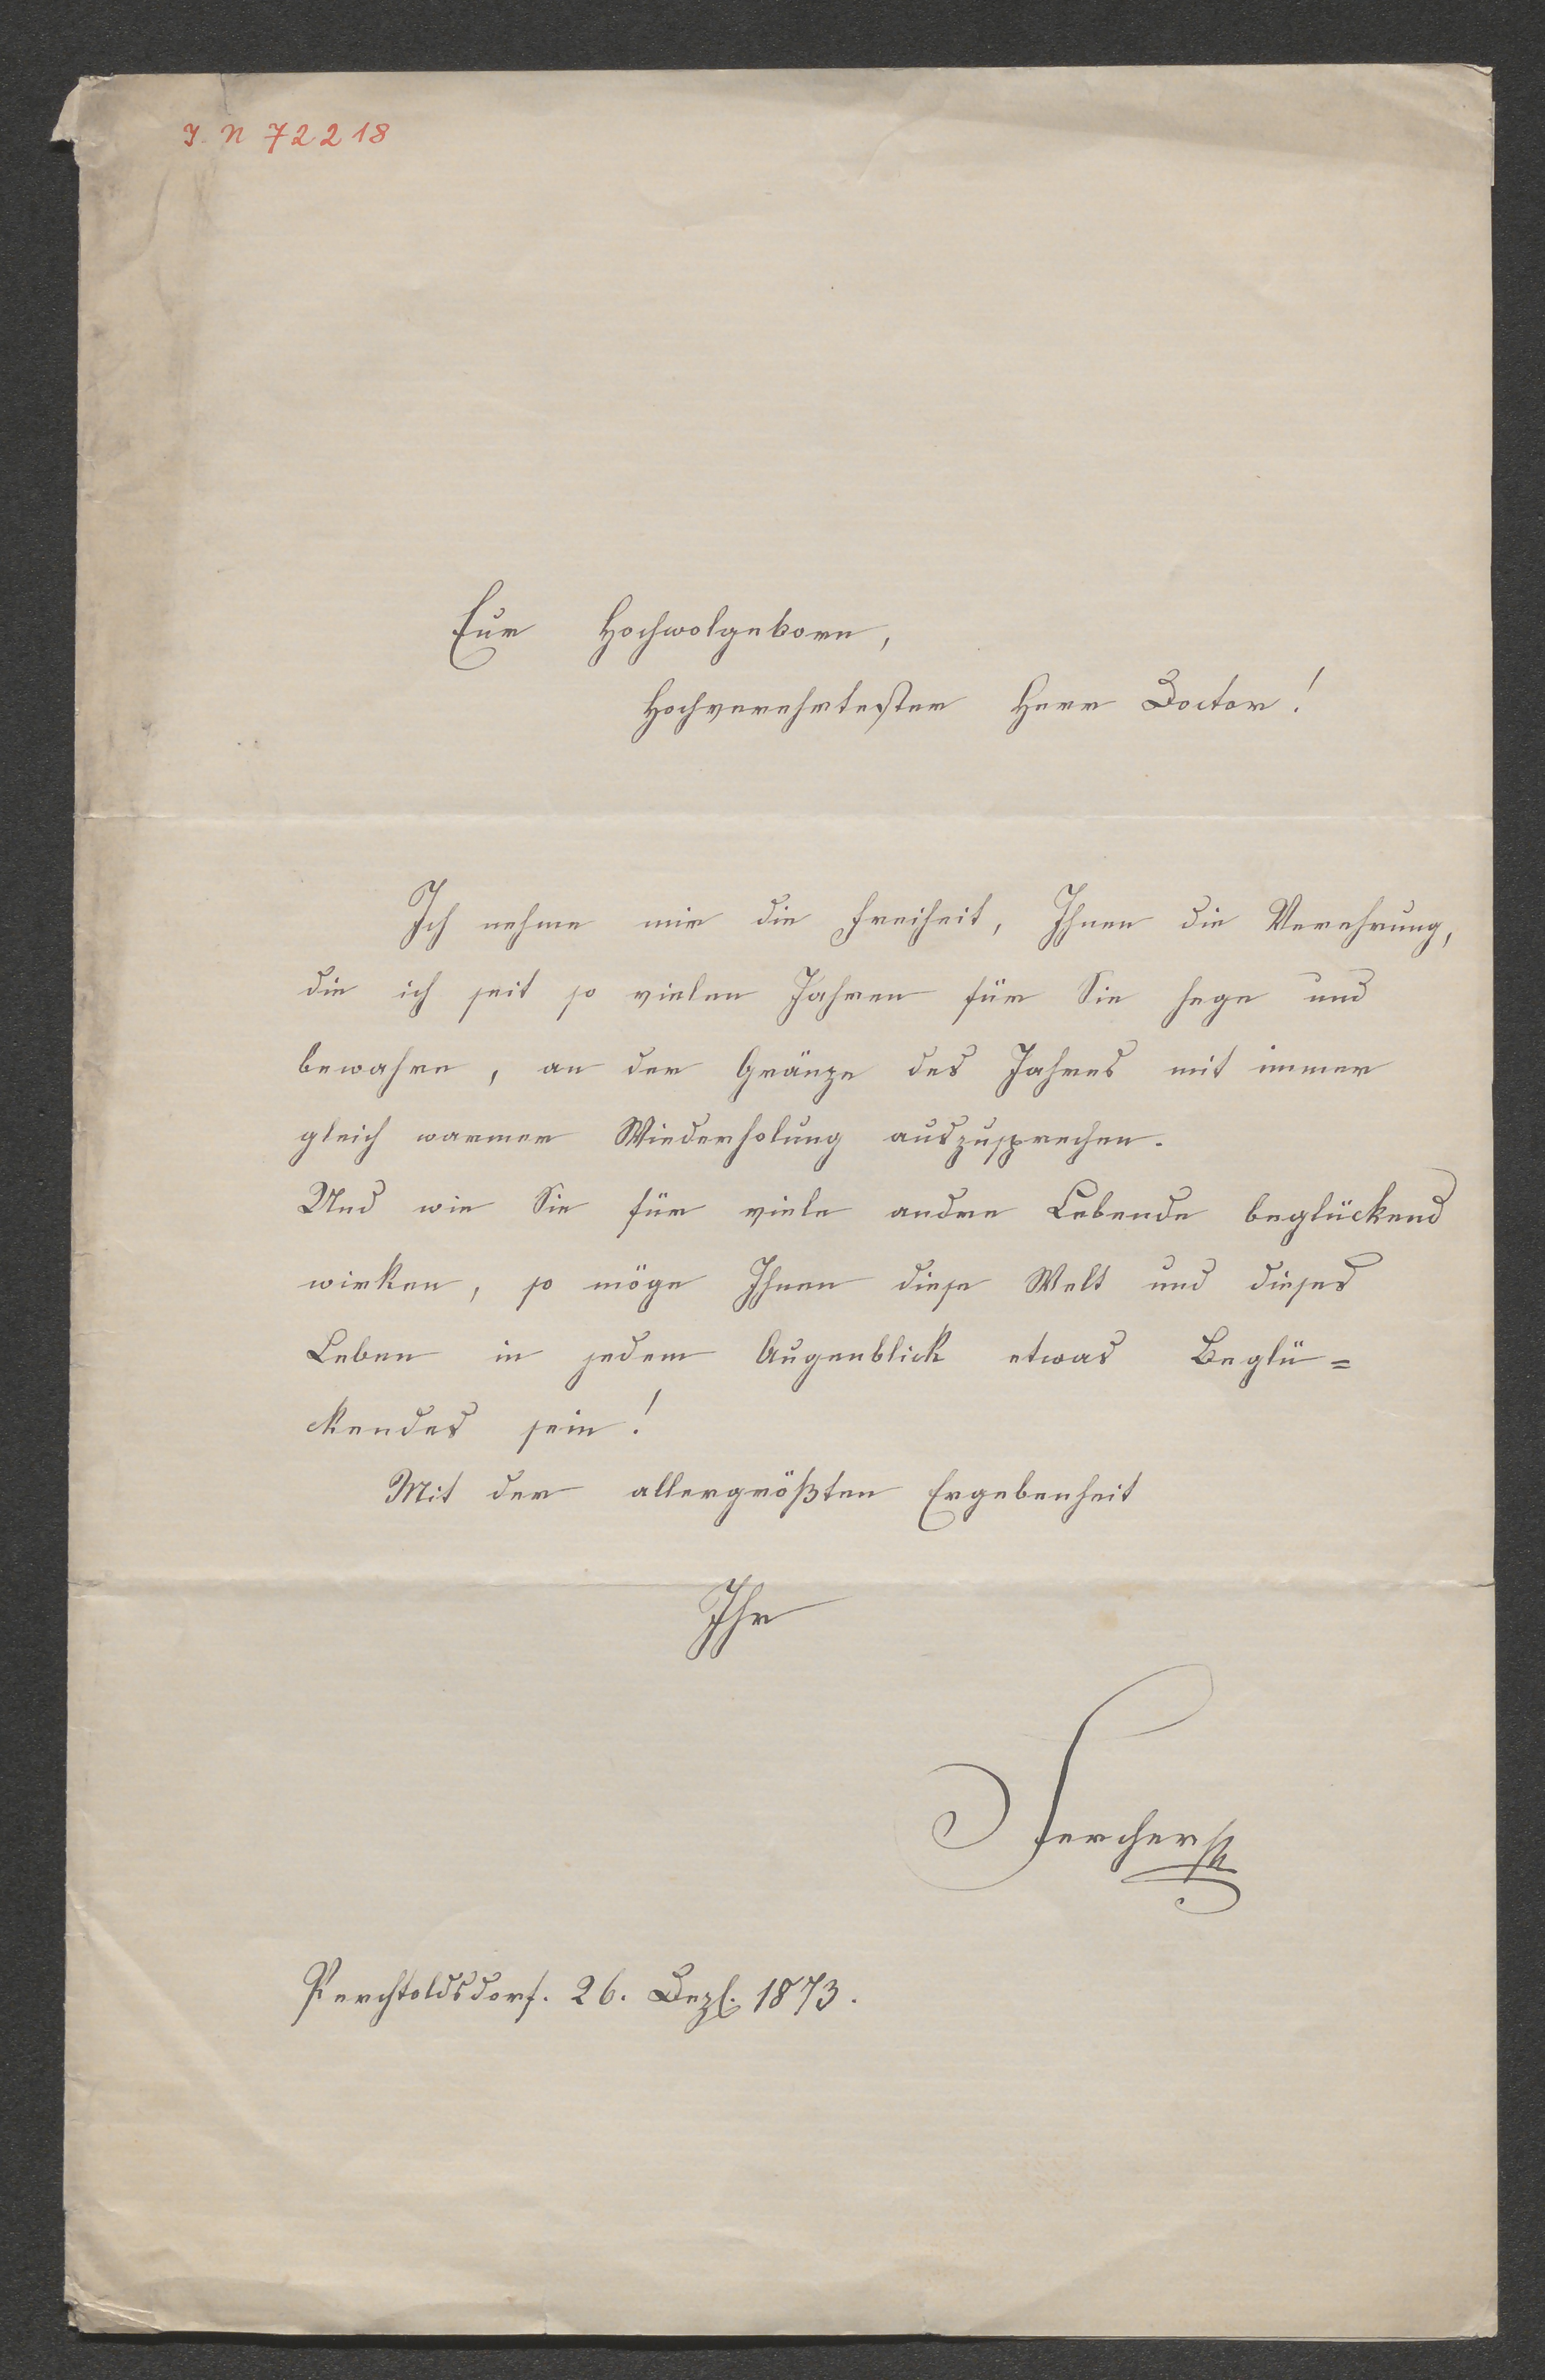 I. N 72218
Eur Hochwolgeborn,
Hochverehrtester Herr Doctor!
Ich nehme mir die Freiheit, Ihnen die Verehrung,
die ich seit so vielen Jahren für Sie hege und
bewahre, an der Gränze des Jahres mit immer
gleich warmer Wiederholung auszusprechen.
Und wie Sie für viele andre Lebende beglückend
wirken, so möge Ihnen diese Welt und dieses
Leben in jedem Augenblick etwas Beglü=
ckendes sein!
Mit der allergrößten Ergebenheit
Ihr
Fercher
Perchtoldsdorf. 26. Dez. 1873.